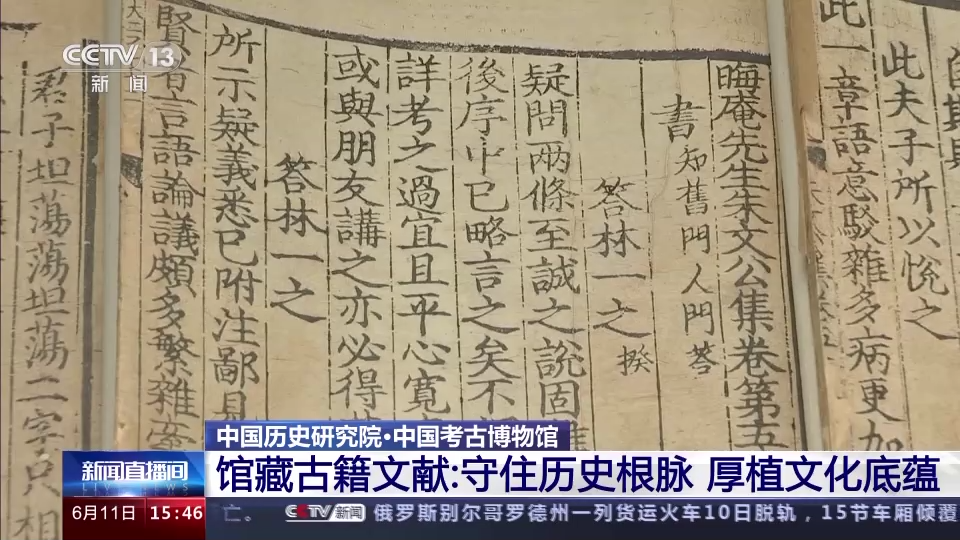 CCTV 13
新闻
白
此夫子所以悦之
此一章語意駁雜多病更加
晦庵先生朱文公集卷第五
書 知舊門人問荅
答林一之 揆
疑問兩條至誠之說固
後序中已略言之矣不
詳考之過宜且平心寬
或與朋友講之亦必得
答林一之
所示疑義悉已附注鄙見
賢者言語論議頗多繁雜
君子坦蕩蕩坦蕩二字只相
中国历史研究院·中国考古博物馆
新闻直播间
馆藏古籍文献:守住历史根脉 厚植文化底蕴
6月11日 15:46
亡。 CCTV新闻 俄罗斯别尔哥罗德州一列货运火车10日脱轨，15节车厢倾覆